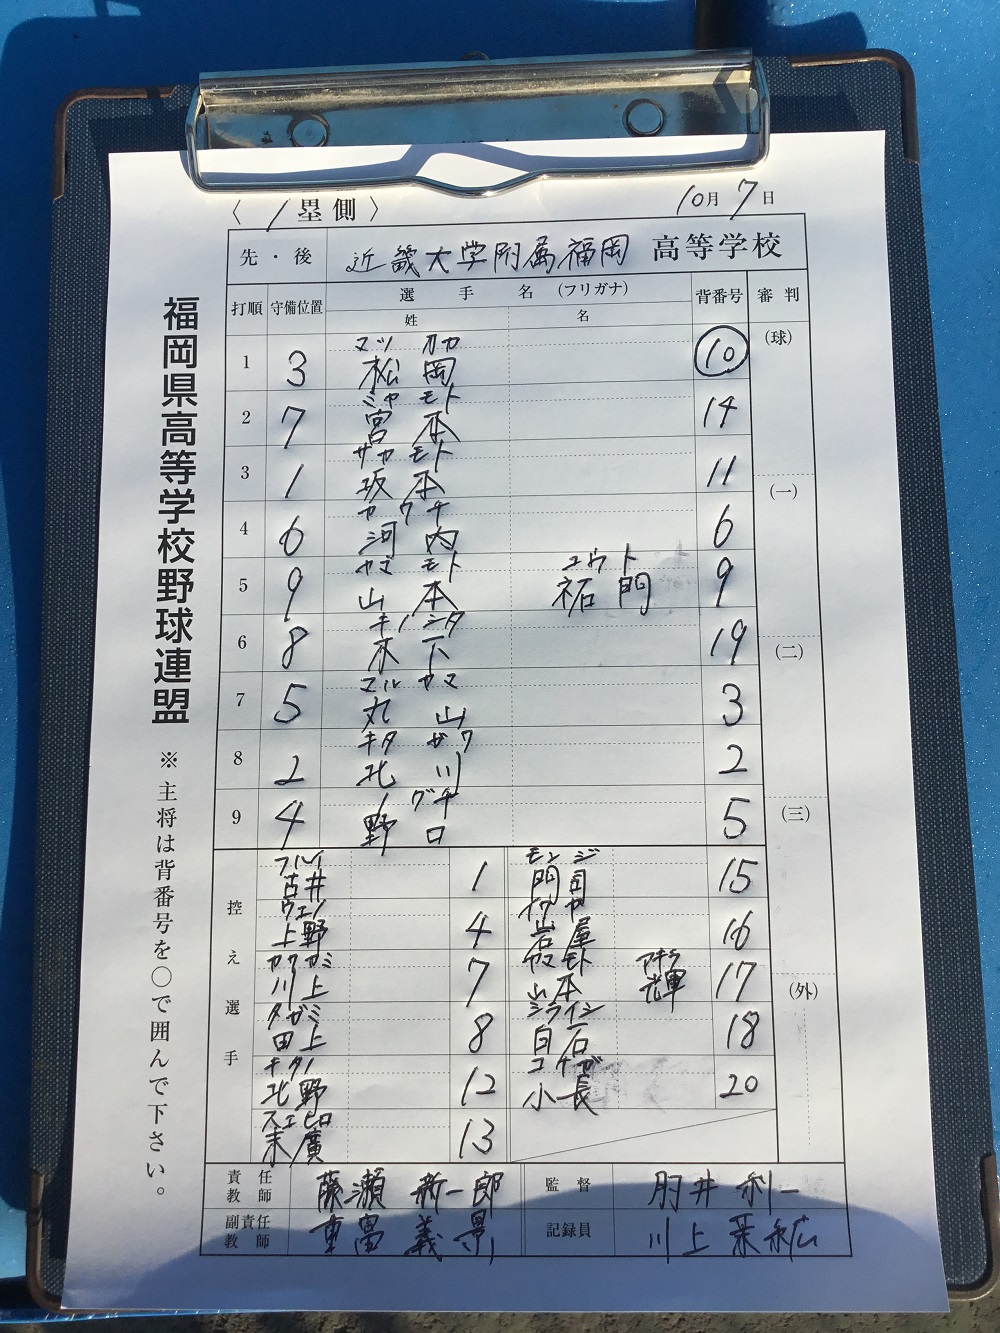 〈 1 塁側 〉 10月 7日
先・後 近畿大学附属福岡 高等学校
打順 守備位置 選手名 (フリガナ) 背番号 審判
姓 名
マツ オカ
1 3 松岡 10
ミヤ モト
2 7 宮本 14
サカ モト
3 1 坂本 11
カワ チ
4 6 河内 6
ヤマ モト ユウト
5 9 山本 祐門 9
キノシタ
6 8 木下 19
マル ヤマ
7 5 丸山 3
キタ ガワ
8 2 北川 2
ノ グチ
9 4 野口 5
(球)
(一)
(二)
(三)
(外)
控え選手
フルイ モンジ
古井 1 門司 15
ウエノ イワヤ
上野 4 岩屋 16
カワカミ ヤマモト アキラ
川上 7 山本 輝 17
タガミ シライシ
田上 8 白石 18
キタノ コナガ
北野 12 小長 20
スエヒロ
末廣 13
責任教師 藤瀬 新一郎 監督 肘井 利一
副責任教師 重冨 義影 記録員 川上
福岡県高等学校野球連盟 ※主将は背番号を○で囲んで下さい。